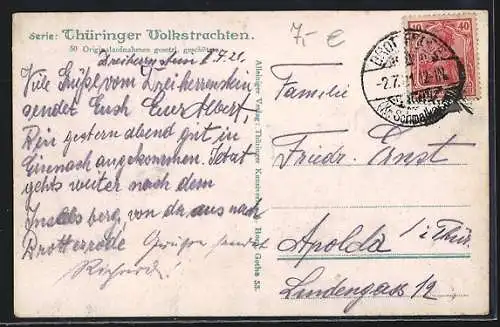 Serie: Thüringer Volkstrachten.
50 Originalaufnahmen gesetzl. geschützt.
7,- €
Dreiherrnstein 2.7.21.
Viele Grüße vom Dreiherrenstein
sendet Euch Euer Albert,
Bin gestern abend gut in
Eisenach angekommen. Jetzt
gehts weiter nach dem
Inselsberg, von da aus nach
Brotterode Grüße sendet
Richard!
Alleiniger Verlag: Thüringer Gotha 53.
Familie
Friedr. Ernst
Apolda i/Thür.
Lindengass 19
40 40
-2.7.21